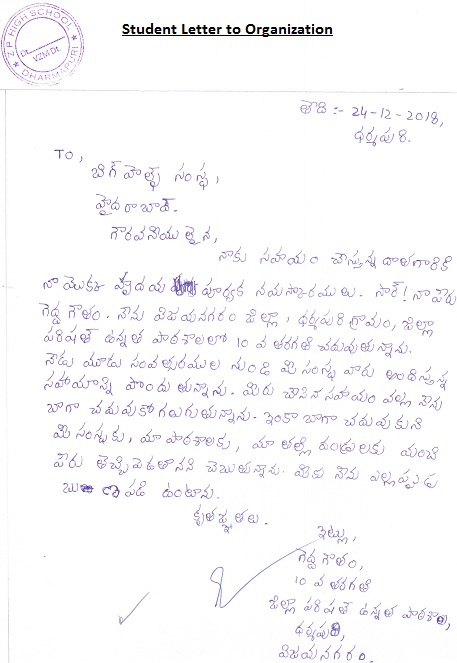 Student Letter to Organization
Z P HIGH SCHOOL
VZM Dt.
DHARMAPURI
తేది :- 24-12-2018,
ధర్మపురి.
TO,
బిగ్ హెల్ప్ సంస్థ,
హైదరాబాద్.
గౌరవనీయులైన,
నాకు సహాయం చేస్తున్న దాతగారికి
నా యొక్క హృదయ పూర్వక నమస్కారములు. సార్! నా పేరు
గెద్ద గౌతం. నేను విజయనగరం జిల్లా, ధర్మపురి గ్రామం, జిల్లా
పరిషత్ ఉన్నత పాఠశాలలో 10 వ తరగతి చదువుతున్నాను.
నేడు మూడు సంవత్సరముల నుండి మీ సంస్థ వారు అందిస్తున్న
సహాయాన్ని పొందుతున్నాను. మీరు చేసిన సహాయం వల్ల నేను
బాగా చదువుకోగలుగుతున్నాను. ఇంకా బాగా చదువుకుని
మీ సంస్థకు, మా పాఠశాలకు, మా తల్లి దండ్రులకు మంచి
పేరు తెచ్చిపెడతానని చెబుతున్నాను. మీకు నేను ఎల్లప్పుడు
పడి ఉంటాను.
కృతజ్ఞతలు.
ఇట్లు,
గెద్ద గౌతం,
10 వ తరగతి
జిల్లా పరిషత్ ఉన్నత పాఠశాల,
ధర్మపురి,
విజయనగరం.